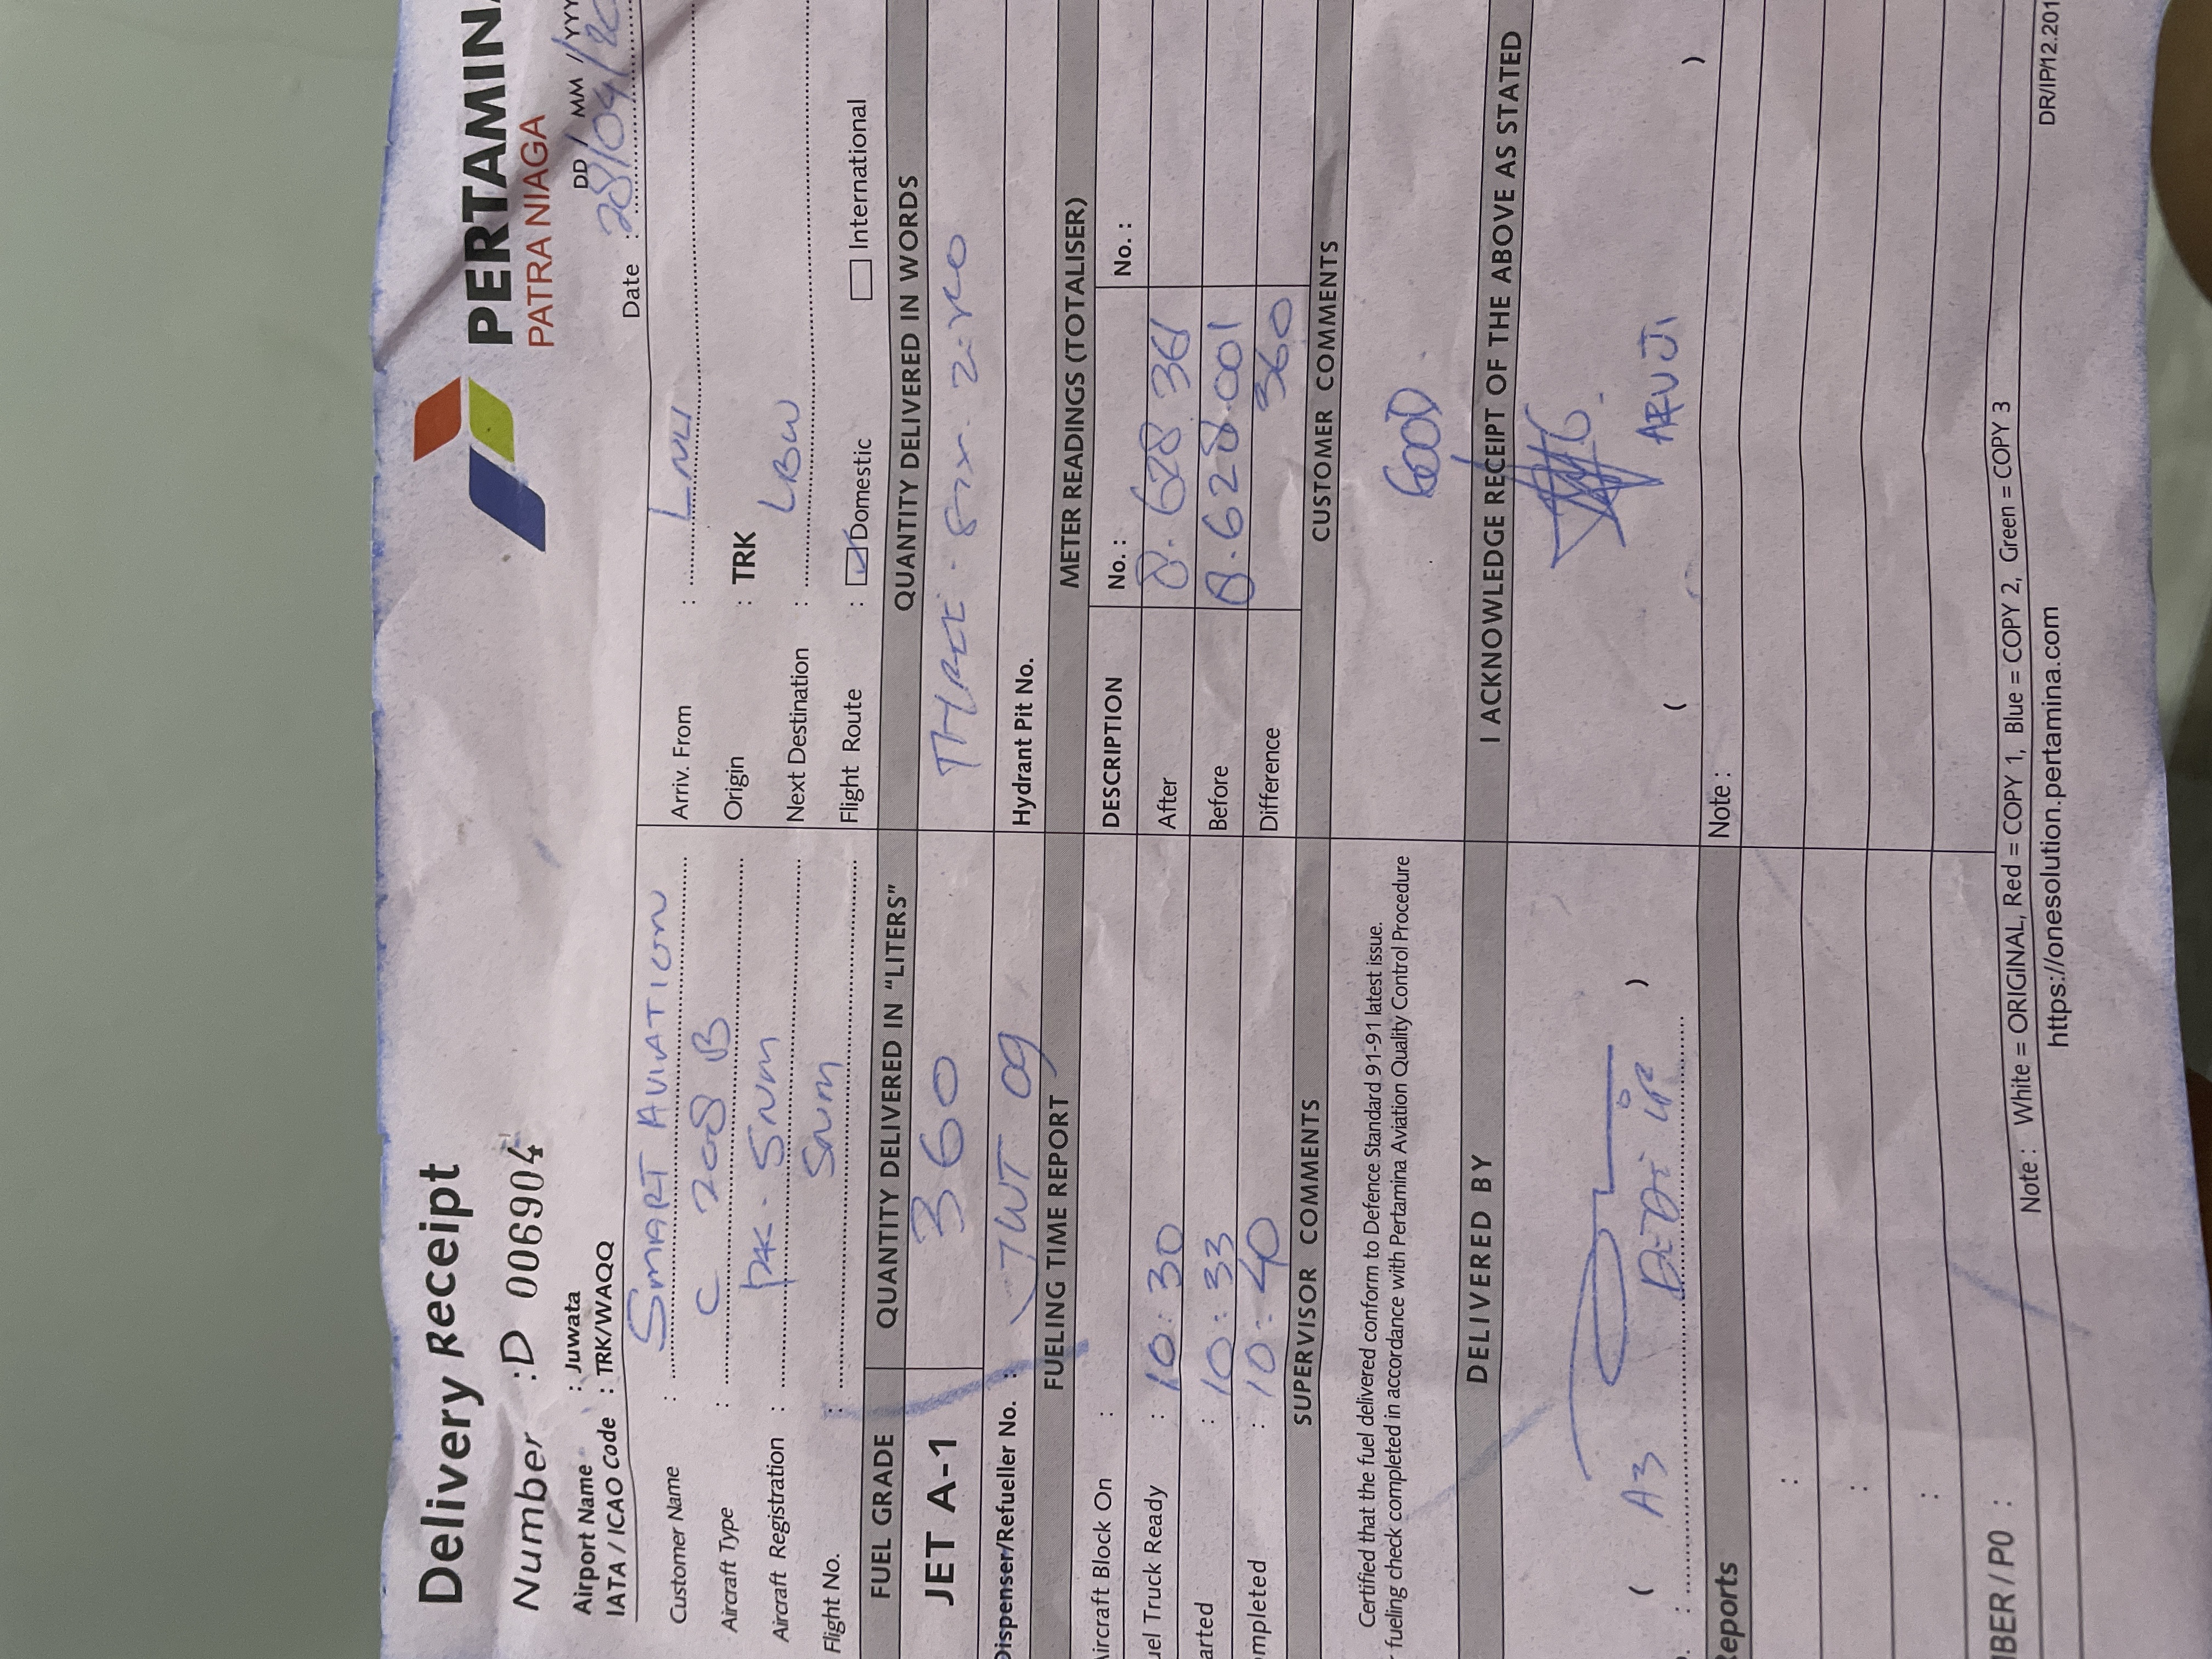 Delivery Receipt
PERTAMIN
PATRA NIAGA
Number : D 006904
DD / MM / YYY
Date : 28/04/20
Airport Name : Juwata
IATA / ICAO Code : TRK/WAQQ
Customer Name : SMART AVIATION
Aircraft Type : C 208 B
Aircraft Registration : PK-SNM
Flight No. : SNM
Arriv. From : LNU
Origin : TRK
Next Destination : LBW
Flight Route : Domestic International
FUEL GRADE QUANTITY DELIVERED IN "LITERS" QUANTITY DELIVERED IN WORDS
JET A-1 360 THREE - SIX - ZERO
Dispenser/Refueller No. : JWT 09 Hydrant Pit No.
FUELING TIME REPORT METER READINGS (TOTALISER)
Aircraft Block On :
uel Truck Ready : 10:30
arted : 10:33
mpleted : 10:40
DESCRIPTION No. : No. :
After 8.628 361
Before 8.628.001
Difference 360
SUPERVISOR COMMENTS CUSTOMER COMMENTS
Certified that the fuel delivered conform to Defence Standard 91-91 latest issue.
fueling check completed in accordance with Pertamina Aviation Quality Control Procedure
GOOD
DELIVERED BY I ACKNOWLEDGE RECEIPT OF THE ABOVE AS STATED
( A3 DEDI )
( )
Reports
Note :
BER / PO :
Note : White = ORIGINAL, Red = COPY 1, Blue = COPY 2, Green = COPY 3
DR/IP/12.201
https://onesolution.pertamina.com